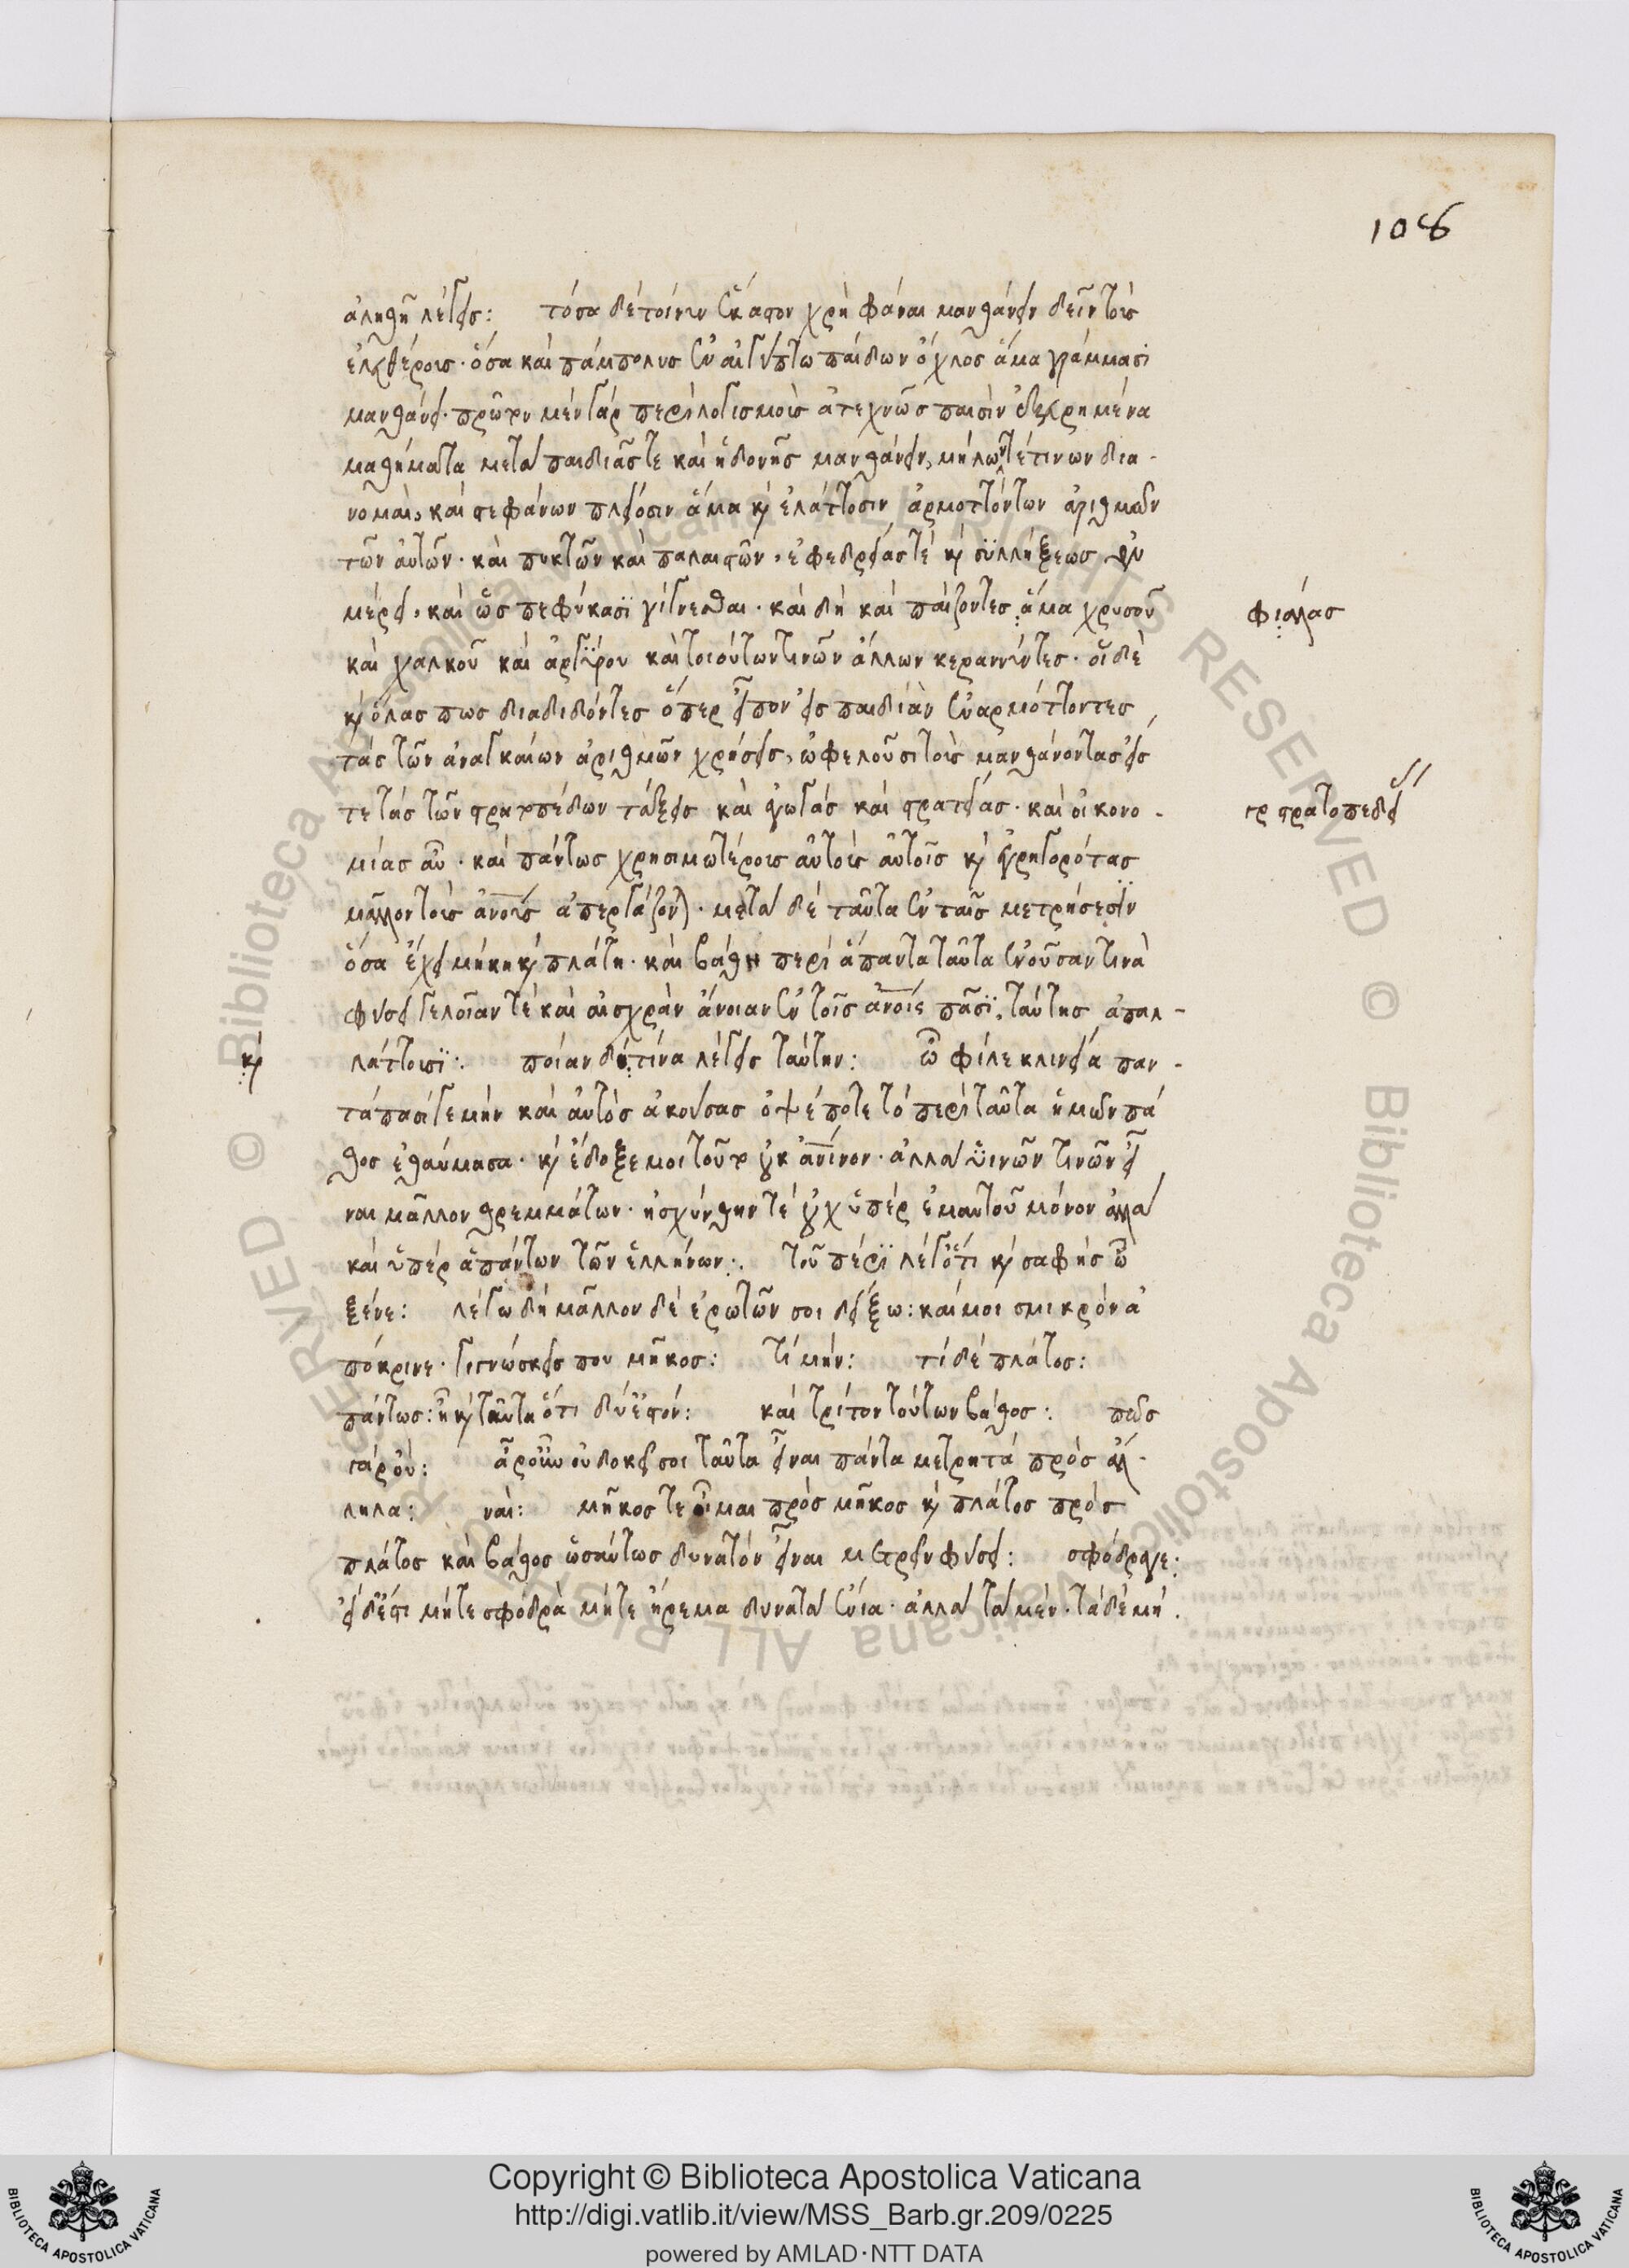 108
ἀληθῆ λέγεις: τόσα δέ τοίνυν ἕκαστον χρὴ φάναι μανθάνειν δεῖν τοὺς
ἐλευθέρους· ὅσα καὶ πάμπολυς ἐν αἰγύπτω παίδων ὄχλος ἅμα γράμμασϊ
μανθάνει· πρῶτον μὲν γὰρ περὶ λογισμοὺς ἀτεχνῶς παισὶν ἐξευρημένα
μαθήματα μετὰ παιδιᾶς τε καὶ ἡδονῆς μανθάνειν, μήλων τέ τινων δια-
νομαὶ, καὶ στεφάνων πλείοσιν ἅμα καὶ ἐλάττοσιν ἁρμοττόντων ἀριθμῶν
τῶν αὐτῶν· καὶ πυκτῶν καὶ παλαιστῶν, ἐφεδρείας τέ καὶ συλλήξεως ἐν
μέρει, καὶ ὡς πεφύκασϊ γίγνεσθαι· καὶ δὴ καὶ παίζοντες ἅμα χρυσοῦ
φιάλας
καὶ χαλκοῦ καὶ ἀργύρου καὶ τοιούτων τινῶν ἄλλων κεραννύντες· οἵ δὲ
καὶ ὅλας πως διαδιδόντες ὅπερ εἶπον εἰς παιδιὰν ἐναρμόττοντες
τὰς τῶν ἀναγκαίων ἀριθμῶν χρήσεις, ὠφελοῦσι τοὺς μανθάνοντας εἰς
τε τὰς τῶν στρατοπέδων τάξεις καὶ ἀγωγὰς καὶ στρατείας· καὶ οἰκονο-
στρατοπεδει
μίας αὖ· καὶ πάντως χρησιμωτέρους αὐτοὺς αὑτοῖς καὶ ἐγρηγορότας
μᾶλλον τοὺς ἀνους ἀπεργάζον)· μετὰ δὲ ταῦτα ἐν ταῖς μετρήσεσϊν
ὅσα ἔχει μήκη καὶ πλάτη· καὶ βάθη περὶ ἅπαντα ταῦτα ἐνοῦσαν τινὰ
φύσει γελοῖαν τὲ καὶ αἰσχρὰν ἄνοιαν ἐν τοῖς ἀνοις πᾶσϊ, ταύτης ἀπαλ-
καὶ
λάττουσϊ: ποίαν δή τίνα λέγεις ταύτην: ὦ φίλε κλινεία παν-
τάπασί γε μὴν καὶ αὐτὸς ἀκούσας ὀψέ ποτε τὸ περὶ ταῦτα ἡμῶν πά
θος ἐθαύμασα· καὶ ἔδοξε μοι τοῦτο οὐκ ἀνινον· ἀλλὰ ὑϊνῶν τινῶν εἶ
ναι μᾶλλον θρεμμάτων· ἠσχύνθην τὲ οὐχ ὑπὲρ ἐμαυτοῦ μόνον ἀλλὰ
καὶ ὑπὲρ ἁπάντων τῶν ἑλλήνων: τοῦ πέρϊ λέγ' ὅ,τι καὶ σαφὴς ὦ
ξένε: λέγω δή μᾶλλον δὲ ἐρωτῶν σοι δείξω: καί μοι σμικρὸν ἀ
πόκρινε· γιγνώσκεις που μῆκος: τί μήν: τί δέ πλάτος:
πάντως: ἦ καὶ ταῦτα ὅτι δύ' ἐστόν: καὶ τρίτον τούτων βάθος: πῶς
γὰρ οὔ: ἆρ' οὖν οὐ δοκεῖ σοι ταῦτα εἶναι πάντα μετρητὰ πρὸς ἄλ-
ληλα: ναί: μῆκος τε οἶμαι πρὸς μῆκος καὶ πλάτος πρὸς
πλάτος καὶ βάθος ὡσαύτως δυνατὸν εἶναι μετρεῖν φύσει: σφόδρα γε:
εἰ δ' ἔστι μήτε σφόδρα μήτε ἠρέμα δυνατὰ ἔνια· ἀλλὰ τὰ μὲν· τὰ δὲ μή.
Copyright © Biblioteca Apostolica Vaticana
http://digi.vatlib.it/view/MSS_Barb.gr.209/0225
powered by AMLAD·NTT DATA